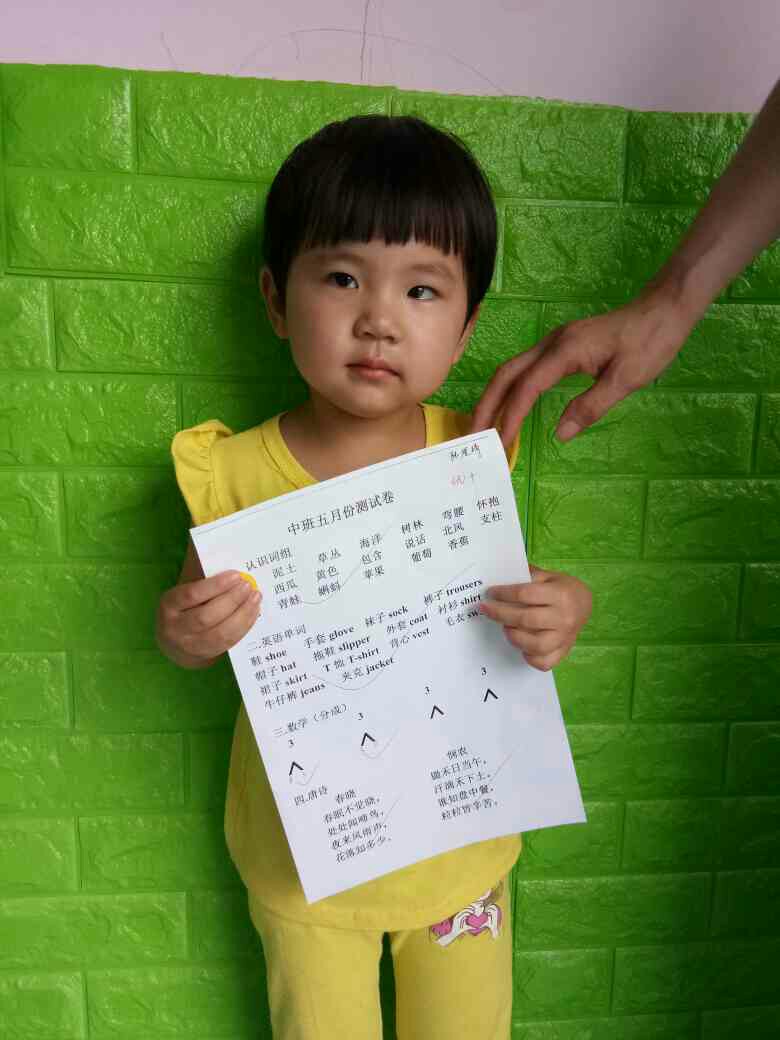 中班五月份测试卷
认识词组
泥土 草丛 海洋 树林 弯腰 怀抱
西瓜 黄色 包含 说话 北风 支柱
青蛙 蝌蚪 苹果 葡萄 香蕉
二.英语单词
鞋 shoe 手套 glove 袜子 sock 裤子 trousers
帽子 hat 拖鞋 slipper 外套 coat 衬衫 shirt
裙子 skirt T 恤 T-shirt 背心 vest 毛衣
牛仔裤 jeans 夹克 jacket
三.数学（分成）
3 3 3 3
四.唐诗
春晓
春眠不觉晓，
处处闻啼鸟，
夜来风雨声，
花落知多少。
悯农
锄禾日当午，
汗滴禾下土，
谁知盘中餐，
粒粒皆辛苦。